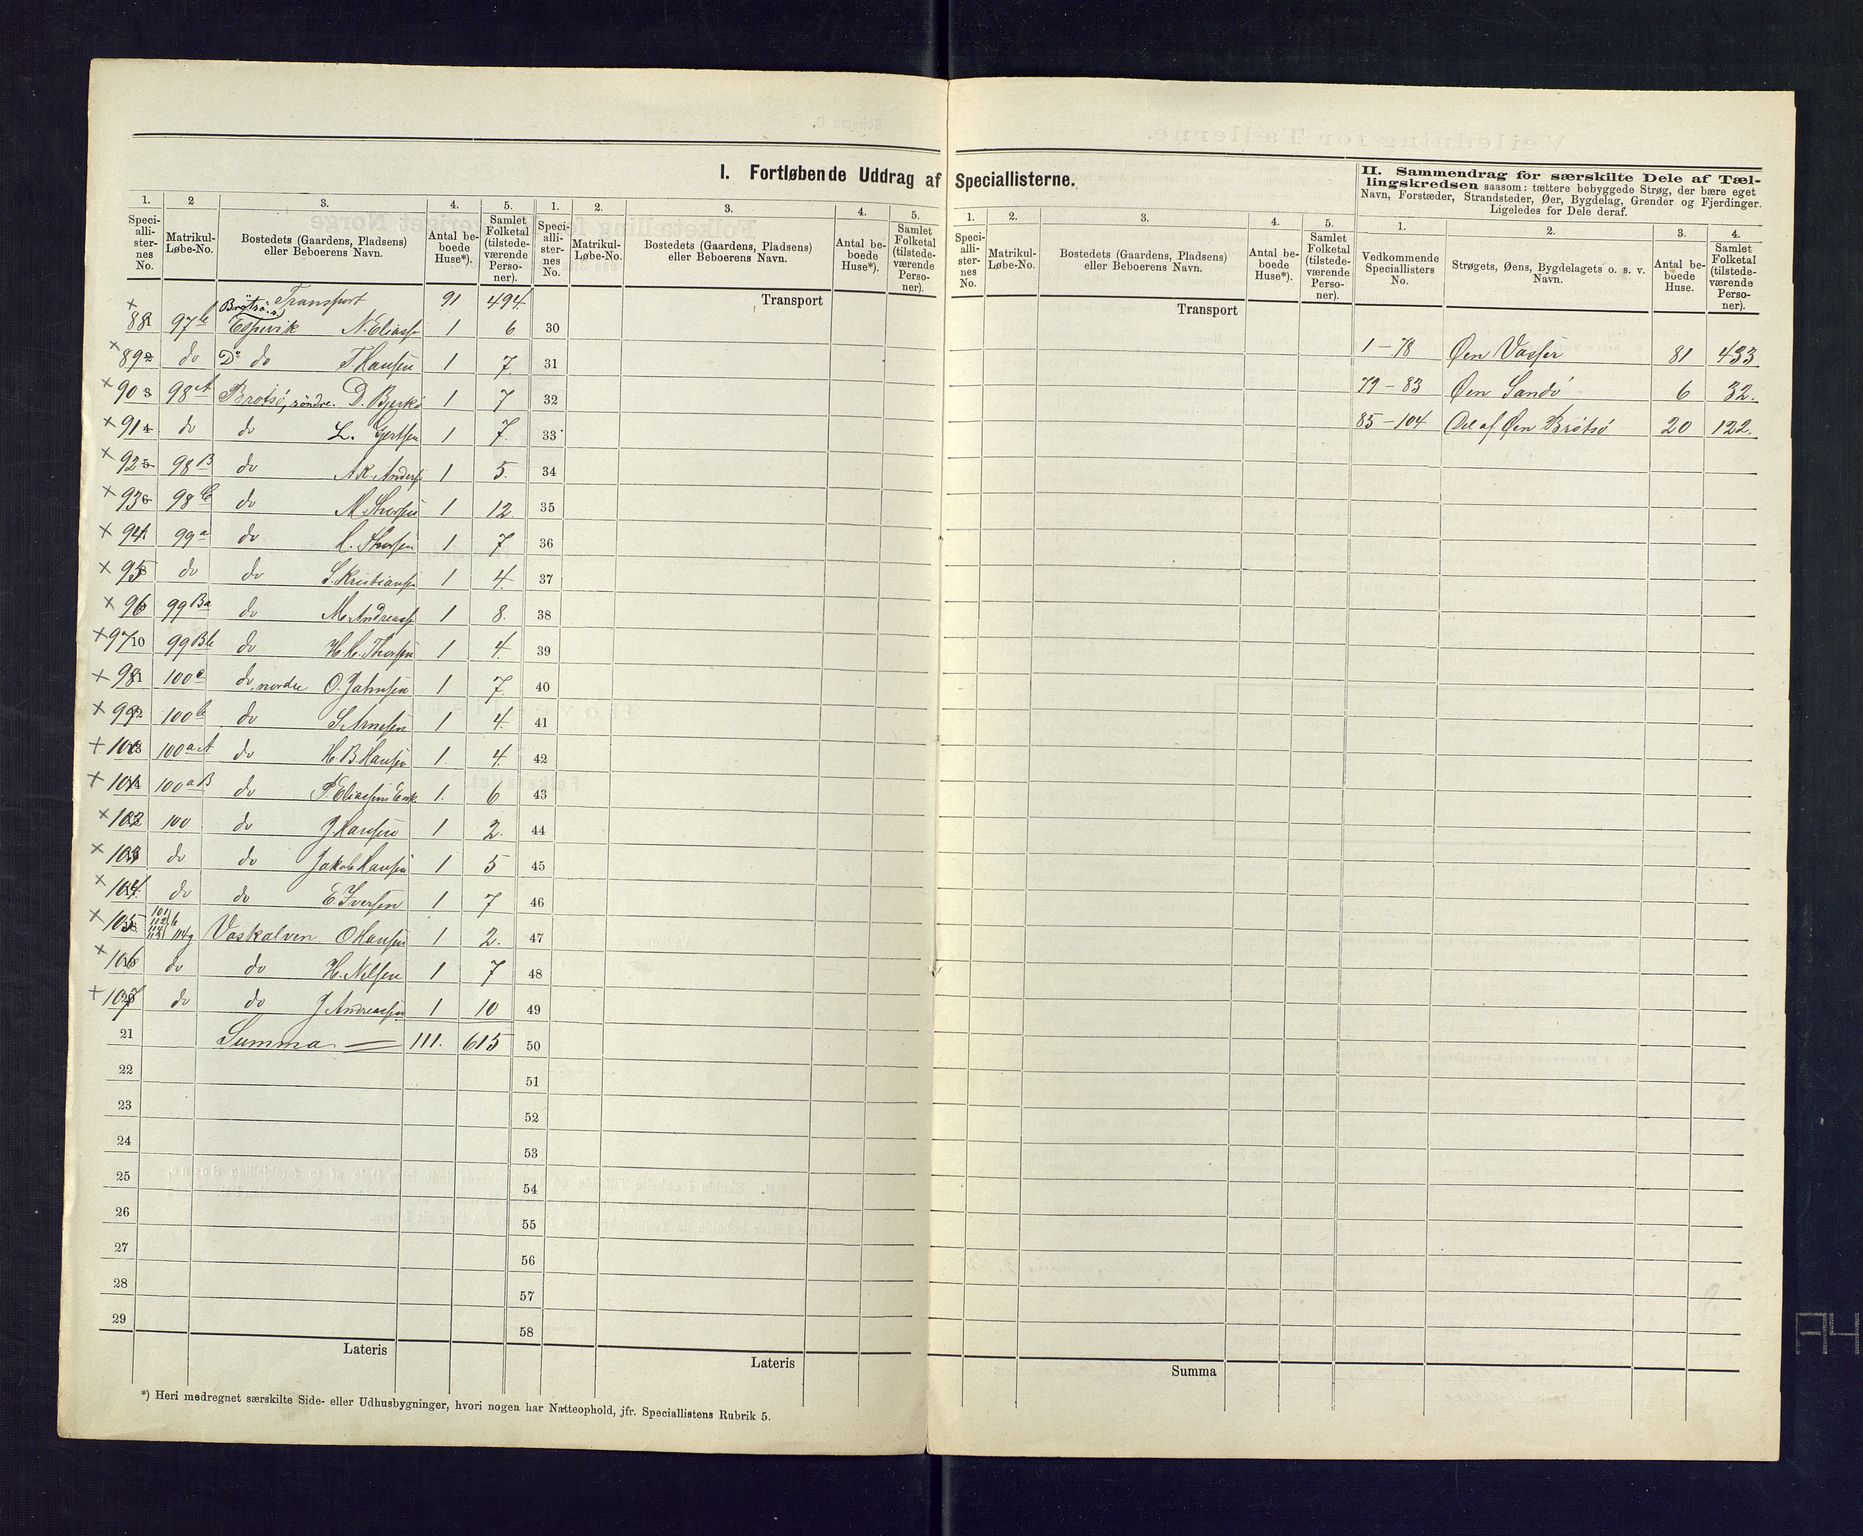 I. Fortløbende Uddrag af Speciallisterne.
1. 2 3. 4. 5. 1. 2. 3. 4. 5.
Speciallisternes No. Matrikul-Løbe-No. Bostedets (Gaardens, Pladsens) eller Beboerens Navn. Antal beboede Huse*). Samlet Folketal (tilstedeværende Personer). Speciallisternes No. Matrikul-Løbe-No. Bostedets (Gaardens, Pladsens) eller Beboerens Navn. Antal beboede Huse*). Samlet Folketal (tilstedeværende Personer).
Transport 91 494. Transport
× 88 97b Brøtsø Espevik N. Eliass 1 6 30
× 89 do Do do T Hansen 1 7. 31
× 90 98A Brøtsø, söndre. D. Bjerkø 1 7 32
× 91 do do L. Gertsen 1 7. 33
× 92 98B do A.K. Anders 1 5. 34
× 93 98C do M. Thorsen 1 12. 35
× 94 99a do H. Thorsen 1 7 36
× 95 do do S. Kristiansen 1 4. 37
× 96 99Ba do M. Andreass 1 8. 38
× 97 99Bb do H. M. Thorsen 1 4. 39
× 98 100c do nordre O. Jahnsen 1 7. 40
× 99 100b do S. Arnesen 1 4. 41
+ 100 100aA do H. B Hansen 1 4. 42
+ 101 100aB do P. Eliassens Enk 1. 6 43
× 102 100 do J Hansen 1 2. 44
× 103 do do Jakob Hansen 1 5 45
× 104 do do E. Iversen 1 7 46
× 105 101 112 114 b 114g Vaskalven O Hansen 1 2. 47
× 106 do do H. Nilsen 1 7 48
+ 107 do do J Andreassen 1 10 49
21 Summa 111. 615 50
22 51
23 52
24 53
25 54
26 55
27 56
28 57
29 58
Lateris Lateris
*) Heri medregnet særskilte Side- eller Udhusbygninger, hvori nogen har Natteophold, jfr. Speciallistens Rubrik 5.
1. 2. 3. 4. 5.
Speciallisternes No. Matrikul-Løbe-No. Bostedets (Gaardens, Pladsens) eller Beboerens Navn. Antal beboede Huse*). Samlet Folketal (tilstedeværende Personer).
Transport
Summa
II. Sammendrag for særskilte Dele af Tællingskredsen saasom: tættere bebyggede Strøg, der bære eget
Navn, Forstæder, Strandsteder, Øer, Bygdelag, Grender og Fjerdinger.
Ligeledes for Dele deraf.
1. 2. 3. 4.
Vedkommende Speciallisters No. Strøgets, Øens, Bygdelagets o. s. v. Navn. Antal beboede Huse. Samlet Folketal (tilstedeværende Personer).
1 - 78 Øen Vasser 81 433
79 - 83 Øen Sandø 6 32.
85 - 104 Del af Øen Brøtsø 20 122.